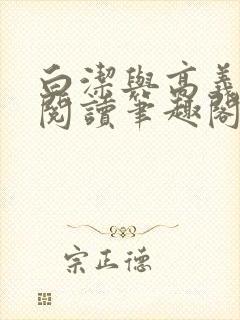 白潔與高義
閱讀筆趣閣
宗正德